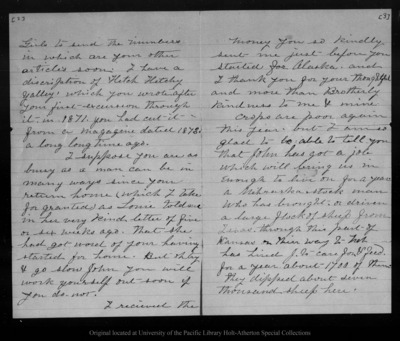 [2]
Girls to send the numbers
in which are your other
articles soon. I have a
discription of Hetch Hetchy
Valley, which you wrote after
your first excursion through
it in 1871. you had cut it
from a magazine dated 1873.
a long long time ago.
I suppose you are as
busy as a man can be in
many ways since your
return home (which I take
for granted) as Some told me
in her very kind letter of five
or six weeks ago. That she
had got word of your having
started for home. But
& go slow John you will
work yourself out soon if
you do not.
I recieved the
[3]
money you so kindly
sent me just before you
started for Alaska. and
I thank you for your thoughtful
and more than Brotherly
kindness to me & mine
Crops are poor again
this year. but I am so
glad to be able to tell you
that John has got a job
which will bring us in
enough to live on for a year
a Nebraska stock man
who has brought or driven
a large flock of sheep from
Texas. through this part of
Kansas on their way
has hired J. to care for & feed
for a year about 1700 of them
They dipped about seven
thousand sheep here.
Original located at University of the Pacific Library Holt-Atherton Special Collections